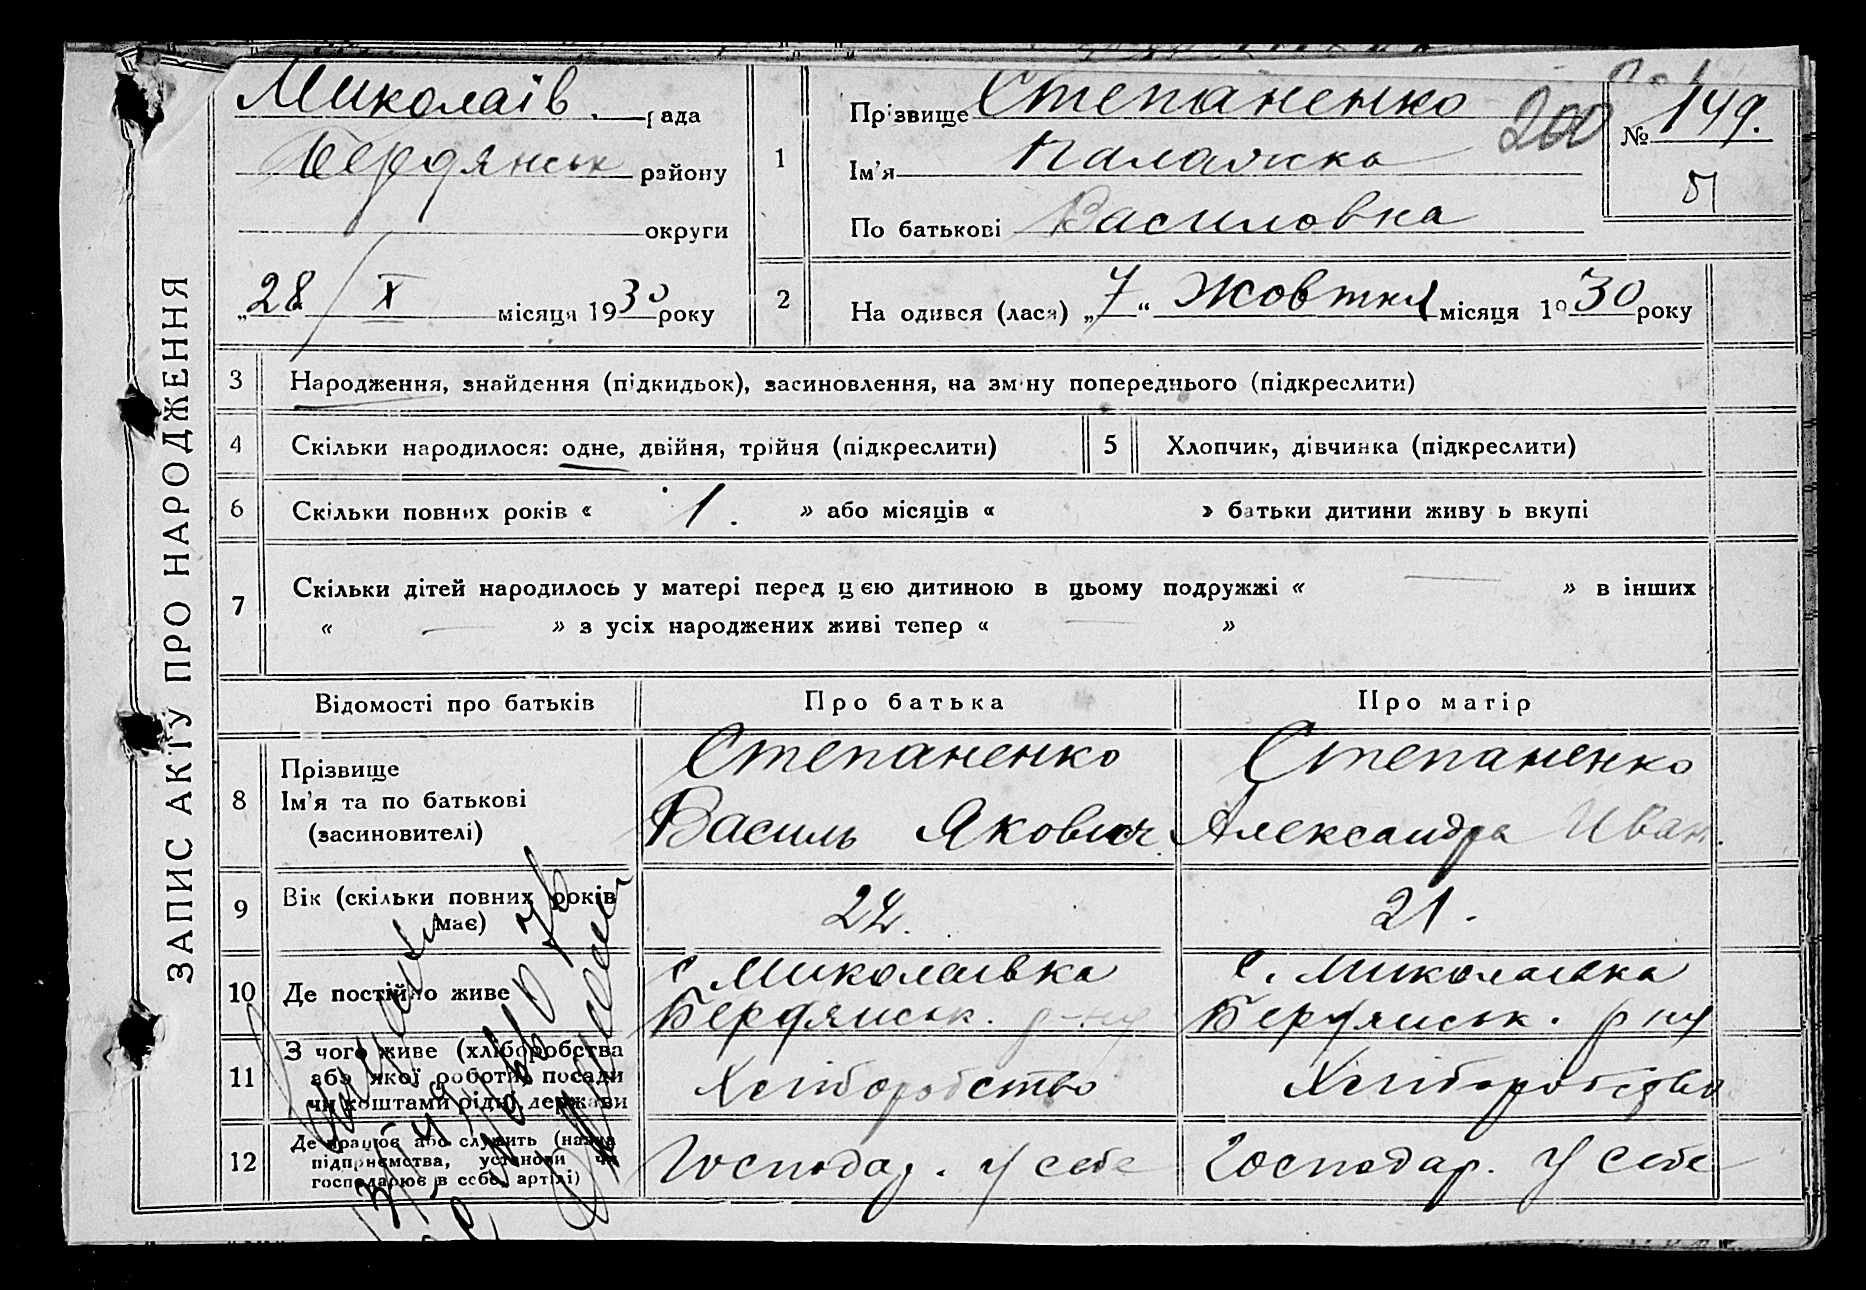 ЗАПИС АКТУ ПРО НАРОДЖЕННЯ
Миколаїв. рада
Бердянськ району
округи
„28 / X місяця 1930 року
1
Прізвище Степаненко
Ім'я Палажка
По батькові Василовка
200
№ 149.
2
На одився (лася) „7“ Жовтня місяця 1930 року
3 Народження, знайдення (підкидьок), засиновлення, на зміну попереднього (підкреслити)
4 Скільки народилося: одне, двійня, трійня (підкреслити)
5 Хлопчик, дівчинка (підкреслити)
6 Скільки повних років « 1. » або місяців « » батьки дитини живу ь вкупі
7 Скільки дітей народилось у матері перед цією дитиною в цьому подружжі « — » в інших
« — » з усіх народжених живі тепер « — »
Відомості про батьків Про батька Про матір
8 Прізвище
Ім'я та по батькові
(засиновителі)
Степаненко
Василь Якович.
Степаненко
Александра Иван.
9 Вік (скільки повних років
має)
22.
21.
10 Де постійно живе
с. Миколаївка
Бердянськ. р-ну
с. Миколаївка
Бердянськ. р ну
11 З чого живе (хліборобства
або якої роботи, посади
чи коштами рідні, держави
Хліборобство
Хліборобство
12 Де працює або служить (назва
підприємства, установи чи
господарює в себе, артілі)
Господар. у себе
Господар. у себе